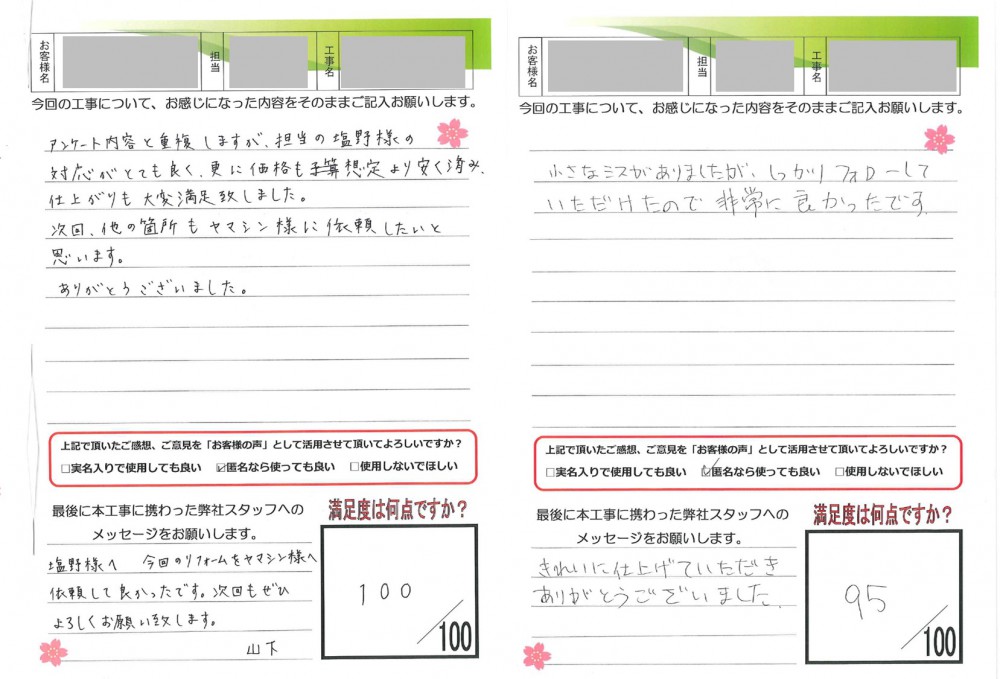 お客様名
担当
工事名
今回の工事について、お感じになった内容をそのままご記入お願いします。
アンケート内容と重複しますが、担当の塩野様の
対応がとても良く、更に価格も予算想定より安く済み、
仕上がりも大変満足致しました。
次回、他の箇所もヤマシン様に依頼したいと
思います。
ありがとうございました。
上記で頂いたご感想、ご意見を「お客様の声」として活用させて頂いてよろしいですか？
□実名入りで使用しても良い ☑匿名なら使っても良い □使用しないでほしい
最後に本工事に携わった弊社スタッフへの
メッセージをお願いします。
塩野様へ 今回のリフォームをヤマシン様へ
依頼して良かったです。次回もぜひ
よろしくお願い致します。
山下
満足度は何点ですか？
100
/100
お客様名
担当
工事名
今回の工事について、お感じになった内容をそのままご記入お願いします。
小さなミスがありましたが、しっかりフォローして
いただけたので非常に良かったです。
上記で頂いたご感想、ご意見を「お客様の声」として活用させて頂いてよろしいですか？
□実名入りで使用しても良い ☑匿名なら使っても良い □使用しないでほしい
最後に本工事に携わった弊社スタッフへの
メッセージをお願いします。
きれいに仕上げていただき
ありがとうございました。
満足度は何点ですか？
95
/100